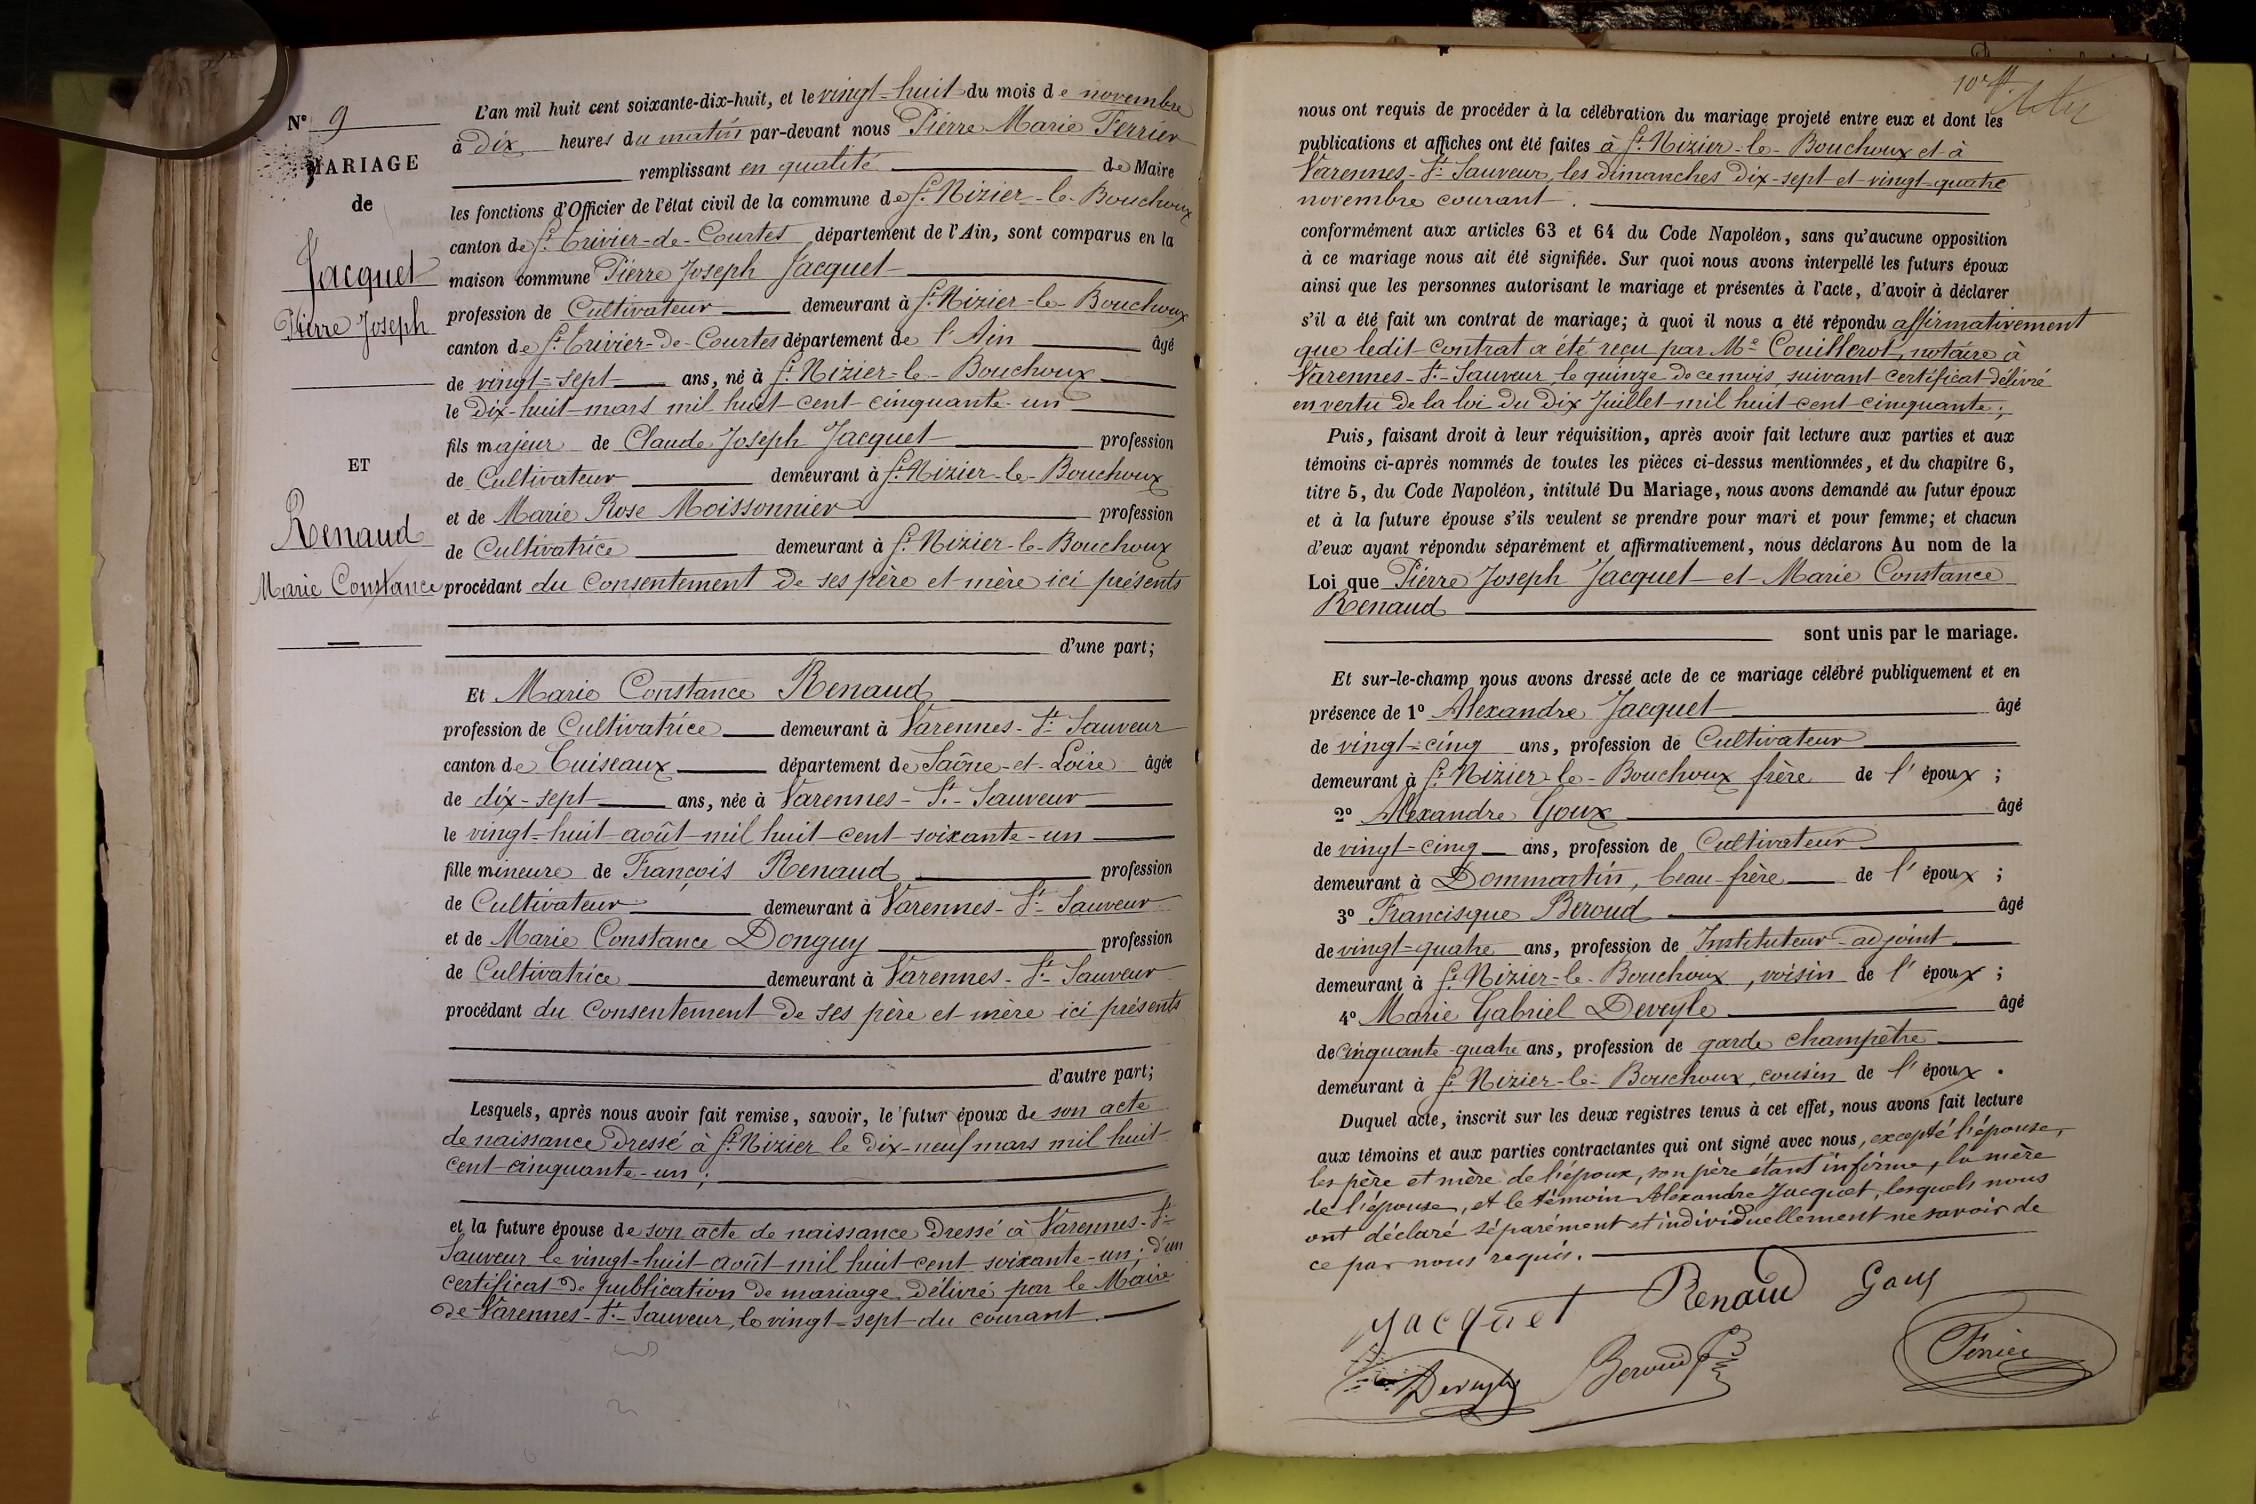 N° 9
MARIAGE
de
Jacquet
Pierre Joseph
ET
Renaud
Marie Constance
L'an mil huit cent soixante-dix-huit, et le vingt-huit du mois de novembre
à dix heures du matin par-devant nous Pierre Marie Ferrier
remplissant en qualité de Maire
les fonctions d'Officier de l'état civil de la commune de St Nizier-le-Bouchoux
canton de St Trivier-de-Courtes département de l'Ain, sont comparus en la
maison commune Pierre Joseph Jacquet
profession de Cultivateur demeurant à St Nizier-le-Bouchoux
canton de St Trivier-de-Courtes département de l'Ain âgé
de vingt-sept ans, né à St Nizier-le-Bouchoux
le dix-huit mars mil huit cent cinquante-un
fils majeur de Claude Joseph Jacquet profession
de Cultivateur demeurant à St Nizier-le-Bouchoux
et de Marie Rose Moissonnier profession
de Cultivatrice demeurant à St Nizier-le-Bouchoux
procédant du consentement de ses père et mère ici présents
d'une part;
Et Marie Constance Renaud
profession de Cultivatrice demeurant à Varennes-St-Sauveur
canton de Cuiseaux département de Saône-et-Loire âgée
de dix-sept ans, née à Varennes-St-Sauveur
le vingt-huit août mil huit cent soixante-un
fille mineure de François Renaud profession
de Cultivateur demeurant à Varennes-St-Sauveur
et de Marie Constance Donguy profession
de Cultivatrice demeurant à Varennes-St-Sauveur
procédant du consentement de ses père et mère ici présents
d'autre part;
Lesquels, après nous avoir fait remise, savoir, le futur époux de son acte
de naissance dressé à St Nizier le dix-neuf mars mil huit
cent cinquante-un;
et la future épouse de son acte de naissance dressé à Varennes-St-
Sauveur le vingt-huit août mil huit cent soixante-un; d'un
certificat de publication de mariage délivré par le Maire
de Varennes-St-Sauveur, le vingt-sept du courant.
nous ont requis de procéder à la célébration du mariage projeté entre eux et dont les
publications et affiches ont été faites à St Nizier-le-Bouchoux et à
Varennes-St-Sauveur, les dimanches dix-sept et vingt-quatre
novembre courant.
conformément aux articles 63 et 64 du Code Napoléon, sans qu'aucune opposition
à ce mariage nous ait été signifiée. Sur quoi nous avons interpellé les futurs époux
ainsi que les personnes autorisant le mariage et présentes à l'acte, d'avoir à déclarer
s'il a été fait un contrat de mariage; à quoi il nous a été répondu affirmativement
que ledit contrat a été reçu par Me Couillerot, notaire à
Varennes-St-Sauveur, le quinze de ce mois, suivant certificat délivré
en vertu de la loi du dix Juillet mil huit cent cinquante;
Puis, faisant droit à leur réquisition, après avoir fait lecture aux parties et aux
témoins ci-après nommés de toutes les pièces ci-dessus mentionnées, et du chapitre 6,
titre 5, du Code Napoléon, intitulé Du Mariage, nous avons demandé au futur époux
et à la future épouse s'ils veulent se prendre pour mari et pour femme; et chacun
d'eux ayant répondu séparément et affirmativement, nous déclarons Au nom de la
Loi que Pierre Joseph Jacquet et Marie Constance
Renaud
sont unis par le mariage.
Et sur-le-champ nous avons dressé acte de ce mariage célébré publiquement et en
présence de 1° Alexandre Jacquet âgé
de vingt-cinq ans, profession de Cultivateur
demeurant à St Nizier-le-Bouchoux frère de l'époux;
2° Alexandre Goux âgé
de vingt-cinq ans, profession de Cultivateur
demeurant à Dommartin, beau-frère de l'époux;
3° Francisque Beroud âgé
de vingt-quatre ans, profession de Instituteur-adjoint
demeurant à St Nizier-le-Bouchoux, voisin de l'époux;
4° Marie Gabriel Deveyle âgé
de cinquante-quatre ans, profession de garde champêtre
demeurant à St Nizier-le-Bouchoux, cousin de l'époux.
Duquel acte, inscrit sur les deux registres tenus à cet effet, nous avons fait lecture
aux témoins et aux parties contractantes qui ont signé avec nous, excepté l'épouse,
les père et mère de l'époux, son père étant infirme, la mère
de l'épouse, et le témoin Alexandre Jacquet, lesquels nous
ont déclaré séparément et individuellement ne savoir de
ce par nous requis.
Jacquet Renaud Goux
Deveyle Beroud Ferrier